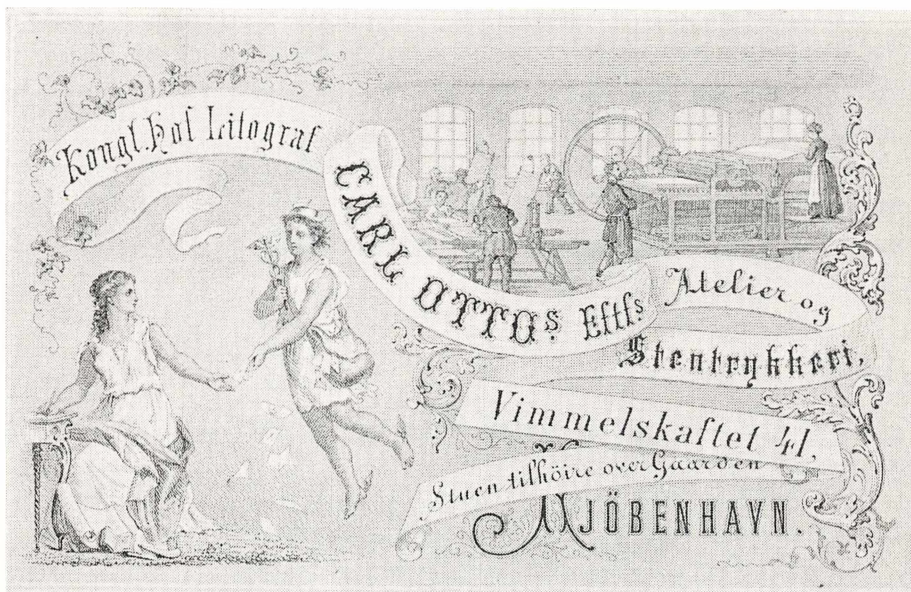 Kongl. Hof Litograf
CARL OTTOs. Eftfs
Atelier og
Stentrykkeri,
Vimmelskaftet 41,
Stuen tilhöire over Gaarden
KJÖBENHAVN.